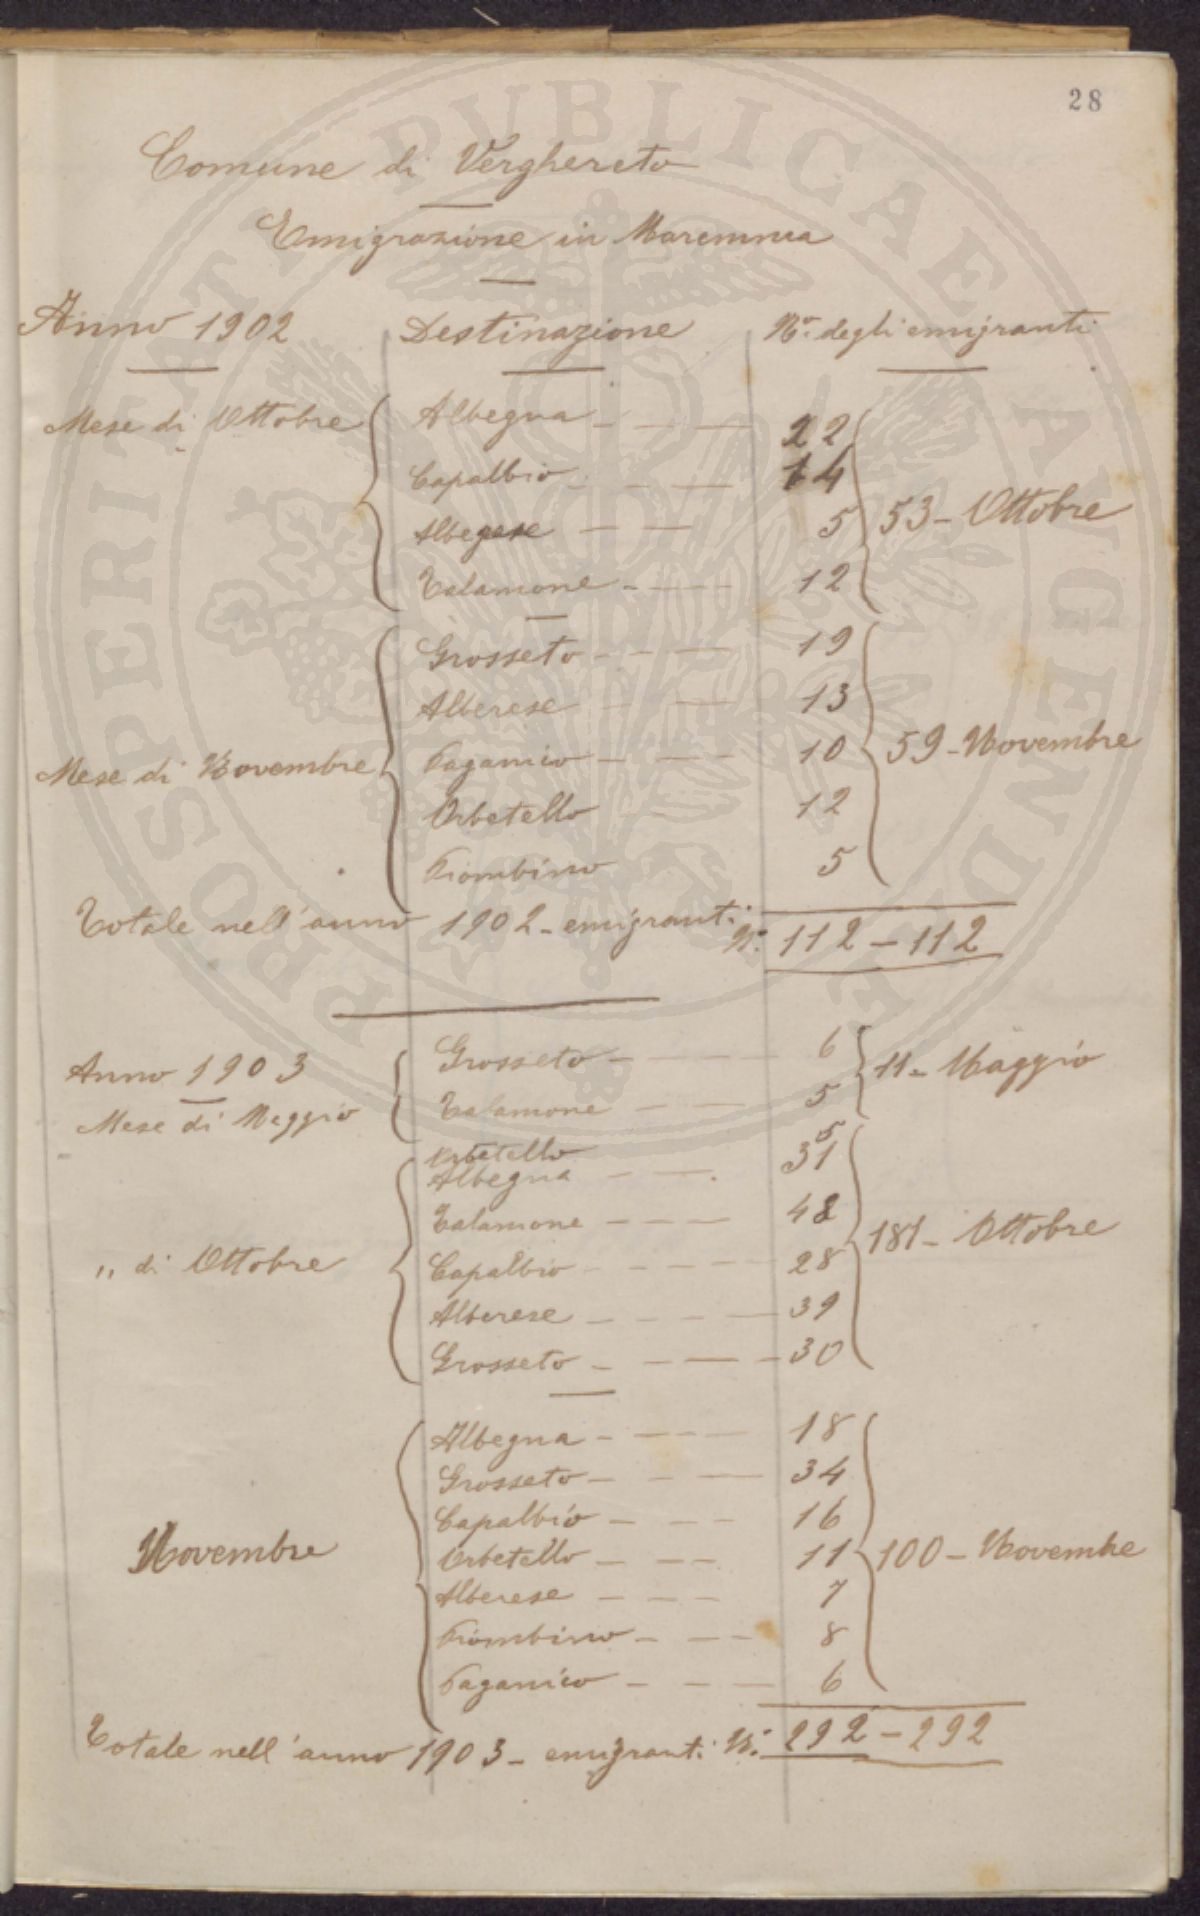 28
Comune di Verghereto
Emigrazione in Maremma
Anno 1902 Destinazione No. degli emigranti
Mese di Ottobre Albegna 22
Capalbio 14
Albegese 5 53 - Ottobre
Talamone 12
Grosseto 19
Alberese 13
Mese di Novembre Paganico 10 59 - Novembre
Orbetello 12
Piombino 5
Totale nell'anno 1902 - emigranti N. 112 - 112
Anno 1903 Grosseto 6 11 - Maggio
Mese di Maggio Talamone 5
Orbetello 5
Albegna 31
Talamone 48
" di Ottobre Capalbio 28 181 - Ottobre
Alberese 39
Grosseto 30
Albegna 18
Grosseto 34
Capalbio 16
Novembre Orbetello 11 100 - Novembre
Alberese 7
Piombino 8
Paganico 6
Totale nell'anno 1903 - emigranti N. 292 - 292
PROSPERITATI PUBLICAE AVGENDAE